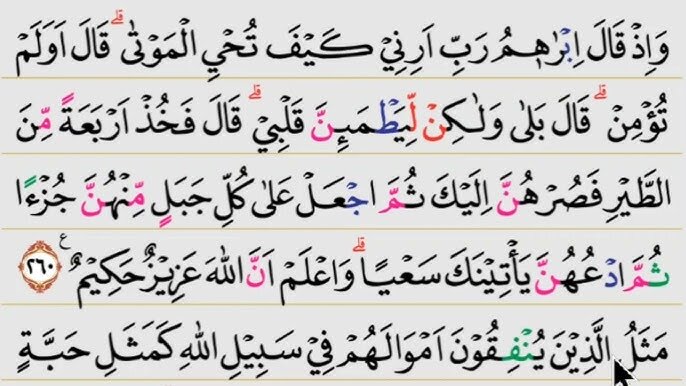 وَاِذْ قَالَ اِبْرٰهٖمُ رَبِّ اَرِنِيْ كَيْفَ تُحْيِ الْمَوْتٰى ۗ قَالَ اَوَلَمْ
تُؤْمِنْ ۗ قَالَ بَلٰى وَلٰكِنْ لِّيَطْمَئِنَّ قَلْبِيْ ۗ قَالَ فَخُذْ اَرْبَعَةً مِّنَ
الطَّيْرِ فَصُرْهُنَّ اِلَيْكَ ثُمَّ اجْعَلْ عَلٰى كُلِّ جَبَلٍ مِّنْهُنَّ جُزْءًا
ثُمَّ ادْعُهُنَّ يَأْتِيْنَكَ سَعْيًا ۗ وَاعْلَمْ اَنَّ اللّٰهَ عَزِيْزٌ حَكِيْمٌ ࣖ ٢٦٠
مَثَلُ الَّذِيْنَ يُنْفِقُوْنَ اَمْوَالَهُمْ فِيْ سَبِيْلِ اللّٰهِ كَمَثَلِ حَبَّةٍ